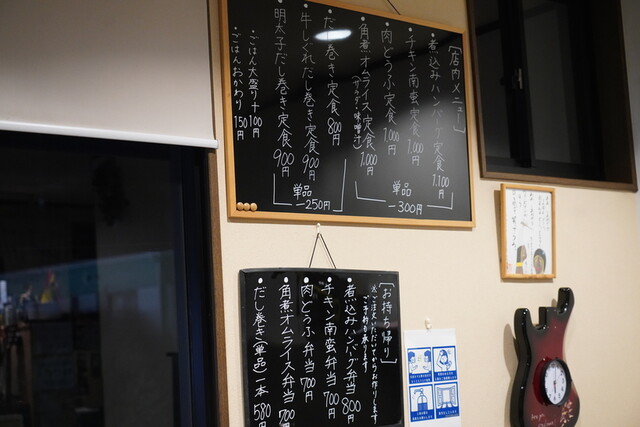 [店内メニュー]
・煮込みハンバーグ定食 1,100円
・チキン南蛮定食 1,000円
・肉どうふ定食 1,000円
・角煮オムライス定食 1,000円
(サラダ・味噌汁)
単品
-300円
・だし巻き定食 800円
・牛しぐれだし巻き定食 900円
・明太子だし巻き定食 900円
単品
-250円
・ごはん大盛り+100円
・ごはんおかわり 150円
[お持ち帰り]
※ご注文いただいてからお作りします
ご予約も承ります
・煮込みハンバーグ弁当 800
・チキン南蛮弁当 700円
・肉どうふ弁当 700円
・角煮オムライス弁当 700
・だし巻き(単品)一本 580